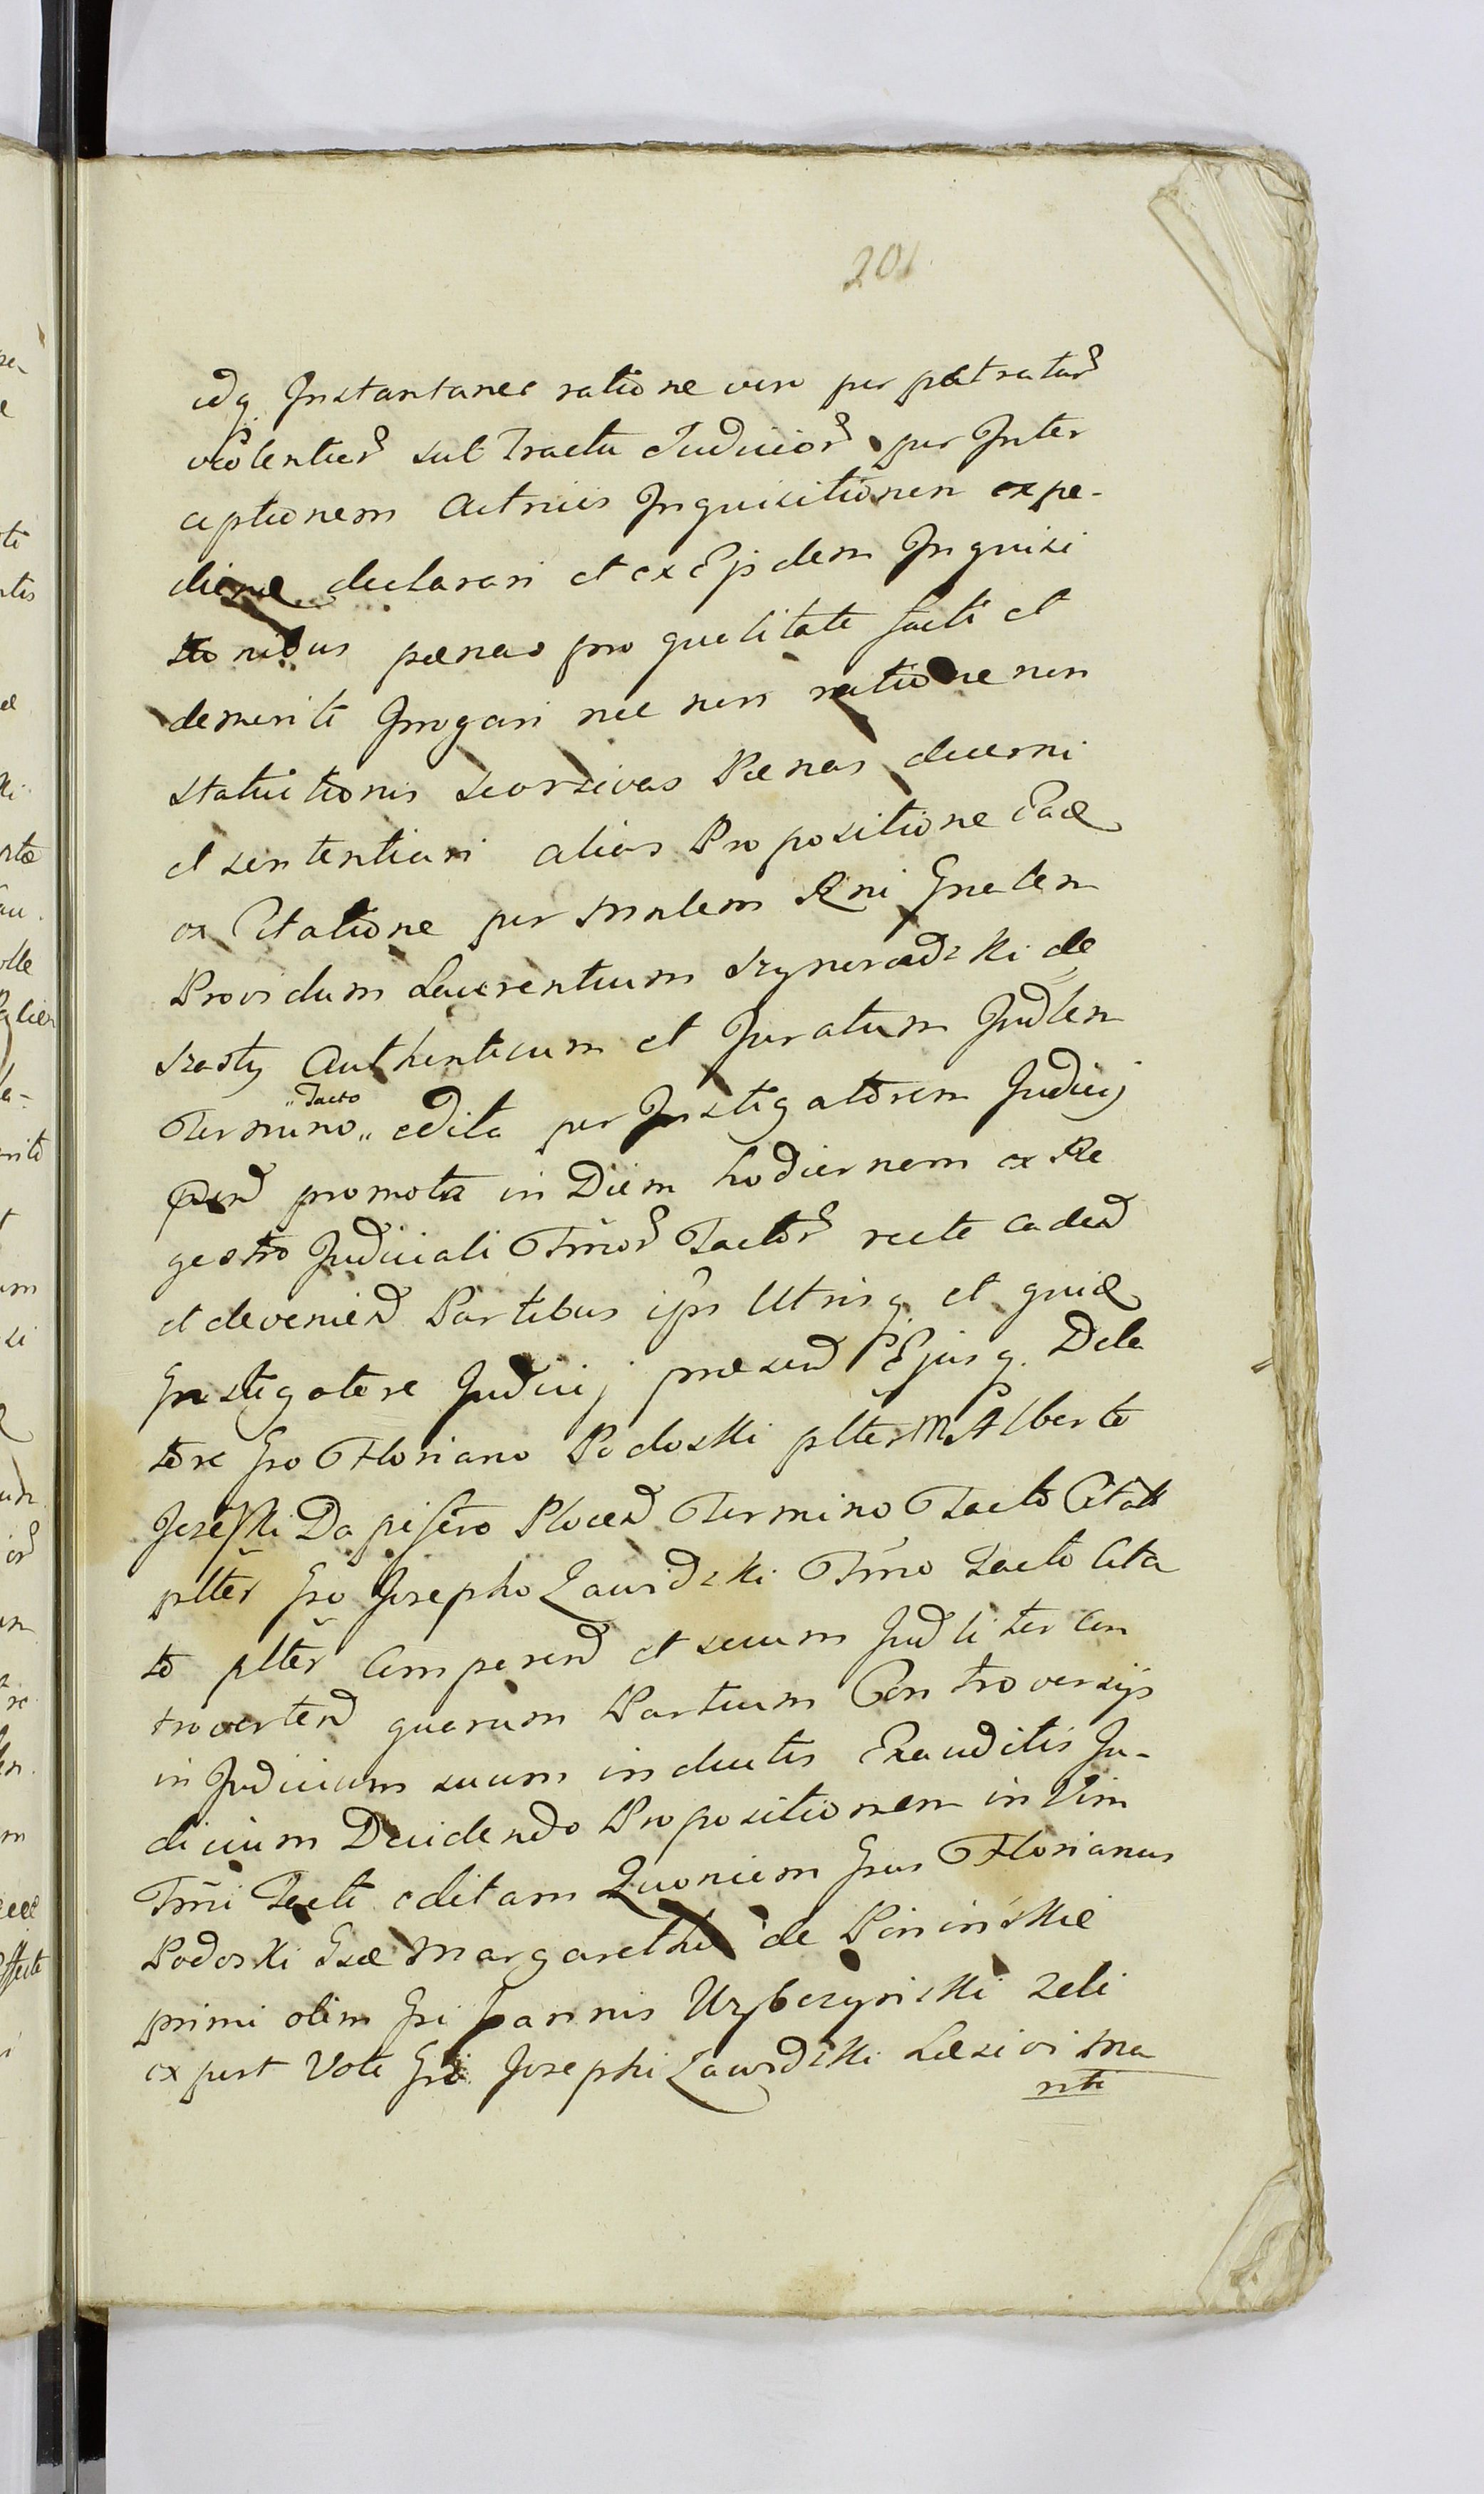 201
idq Instantanee ratione vero per patratar
violentiar sub Tractu Judicior per Inter
ceptionem Actricis Inquisitionem expe-
diend declarari et ex Ejsdem Inquisi
tionibus pænas pro qualitate facti et
demeriti Irrogari nec non ratione non
statuitionis seorsivas Pænas decerni
et sententiari alias Propositione
ex Citatione per Mnlem Rni Gnalem
Providum Laurentium Szymoradzki de
Szasty Authenticum et Juratum Judlem
Termino „ Tacto „ edita per Instigatorem Judicij
promota in Diem hodiernam ex Re
gestro Judiciali Tmor Tactor recte caden
et devenien Partibus ipis Utrisq et quid
Instigatore Judicij præsen Ejusq. Dela
tore Gso Floriano Podoski plter M Alberto
Jezeski Dapifero Plocen Termino Tacto Citat
plter Gso Josepho Zawidzki Tmo Tacto Cita
to plter Comparen et secum Judliter con
troverten quarum Partium Controversijs
in Judicium suum inductis Exauditis Ju-
dicium Decidendo Propositionem in Vim
Tmi Tacti editam Quoniam Gsus Florianus
Podoski Gsæ Margarethæ de Pininskie
primi olim Gsi Joannis Uzybczynski 2di
ex post Voti Gsi Josephi Zawidzki Læsivi ma
riti